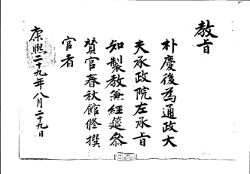 教旨
朴慶後爲通政大
夫承政院左承旨
知製敎兼經筵參
贊官春秋館修撰
官者
康熙二十九年八月二十九日